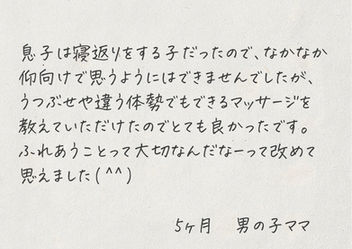 息子は寝返りをする子だったので、なかなか
仰向けで思うようにはできませんでしたが、
うつぶせや違う体勢でもできるマッサージを
教えていただけたのでとても良かったです。
ふれあうことって大切なんだなーって改めて
思えました(^^)
5ヶ月 男の子ママ